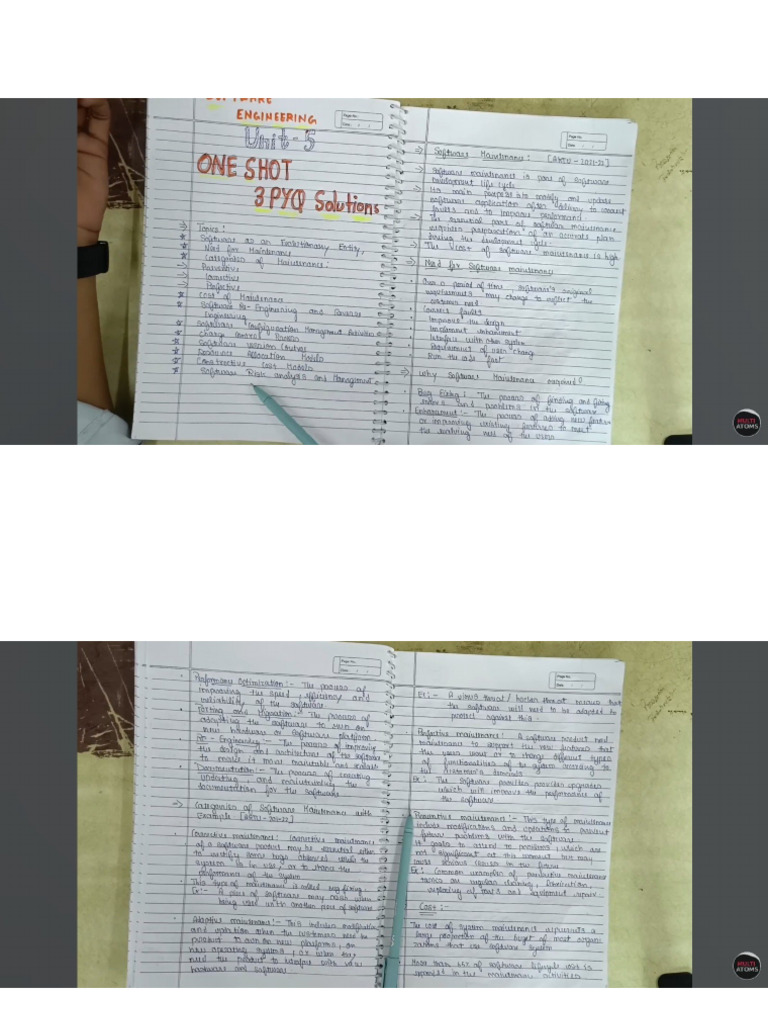 SOFTWARE
ENGINEERING
Unit-5
ONE SHOT
3 PYQ Solutions
Page No.
Date
→ Topics:
☆ Software as an Evolutionary Entity,
☆ Need for Maintenance
☆ Categories of Maintenance:
→ Preventive
→ Corrective
→ Perfective
☆ Cost of Maintenance
☆ Software Re-Engineering and Reverse
Engineering
☆ Software Configuration Management Activities
☆ Change Control Process
☆ Software Version Control
☆ Resource Allocation Models
☆ Constructive Cost Models
☆ Software Risk analysis and Management
Page No.
Date
→ Software Maintenance: [AKTU-2021-22]
→ Software maintenance is part of Software
Development Life Cycle
→ Its main purpose is to modify and update
software application after delivery to correct
faults and to improve performance
→ The essential part of software maintenance
requires preparation of an accurate plan
during the development cycle
→ The cost of software maintenance is high
→ Need for Software maintenance
Over a period of time, software's original
requirements may change to reflect the
customer need
Correct faults
Improve the design
Implement enhancement
Interface with other system
Requirement of user change
Run the code fast
→ Why Software Maintenance required?
• Bug Fixing: The process of finding and fixing
errors and problems in the software
• Enhancement:- The process of adding new features
or improving existing features to meet
the evolving need of the users
MULTI
ATOMS
Page No.
Date
• Performance Optimization:- The process of
improving the speed, efficiency and
reliability of the software
• Porting and Migration:- The process of
adapting the software to run on
new hardware or software platform
• Re-Engineering:- The process of improving
the design and architecture of the software
to make it more maintable and scalable
• Documentation:- The process of creating
updating and maintaining the
documentation for the software
→ Categories of Software Maintenance with
Example [AKTU-2021-22]
• Corrective maintenance: Corrective maintenance
of a software product may be essential either
to rectify some bugs observed while the
system is in use, or to enhance the
performance of the system
• This type of maintenance is called bug fixing
Ex:- A piece of software may crash when
being used with another piece of software
• Adaptive maintenance:- This includes modification
and updation when the customers need the
product to run on new platforms, on
new operating systems, or when they
need the product to interface with new
hardware and software
Page No.
Date
Ex:- A virus threat / hacker threat means that
the software will need to be adapted to
protect against this.
Perfective maintenance: A software product need
maintenance to support the new features that
the users want or to change different types
of functionalities of the system according to
the customer's demands
Ex: The software provider provides upgrades
which will improve the performance of
the software
• Preventive maintenance:- This type of maintenance
includes modifications and updations to prevent
future problems with the software
It goals to attend to problems, which are
not significant at this moment but may
cause serious issues in the future
Ex: Common examples of preventive maintenance
tasks are regular cleaning, lubrication,
replacing of parts and equipment repair
Cost:-
The cost of system maintenance represents a
large proportion of the budget of most organi-
zations that use software system
• More than 65% of software lifecycle cost is
expended in the maintenance activities
MULTI
ATOMS